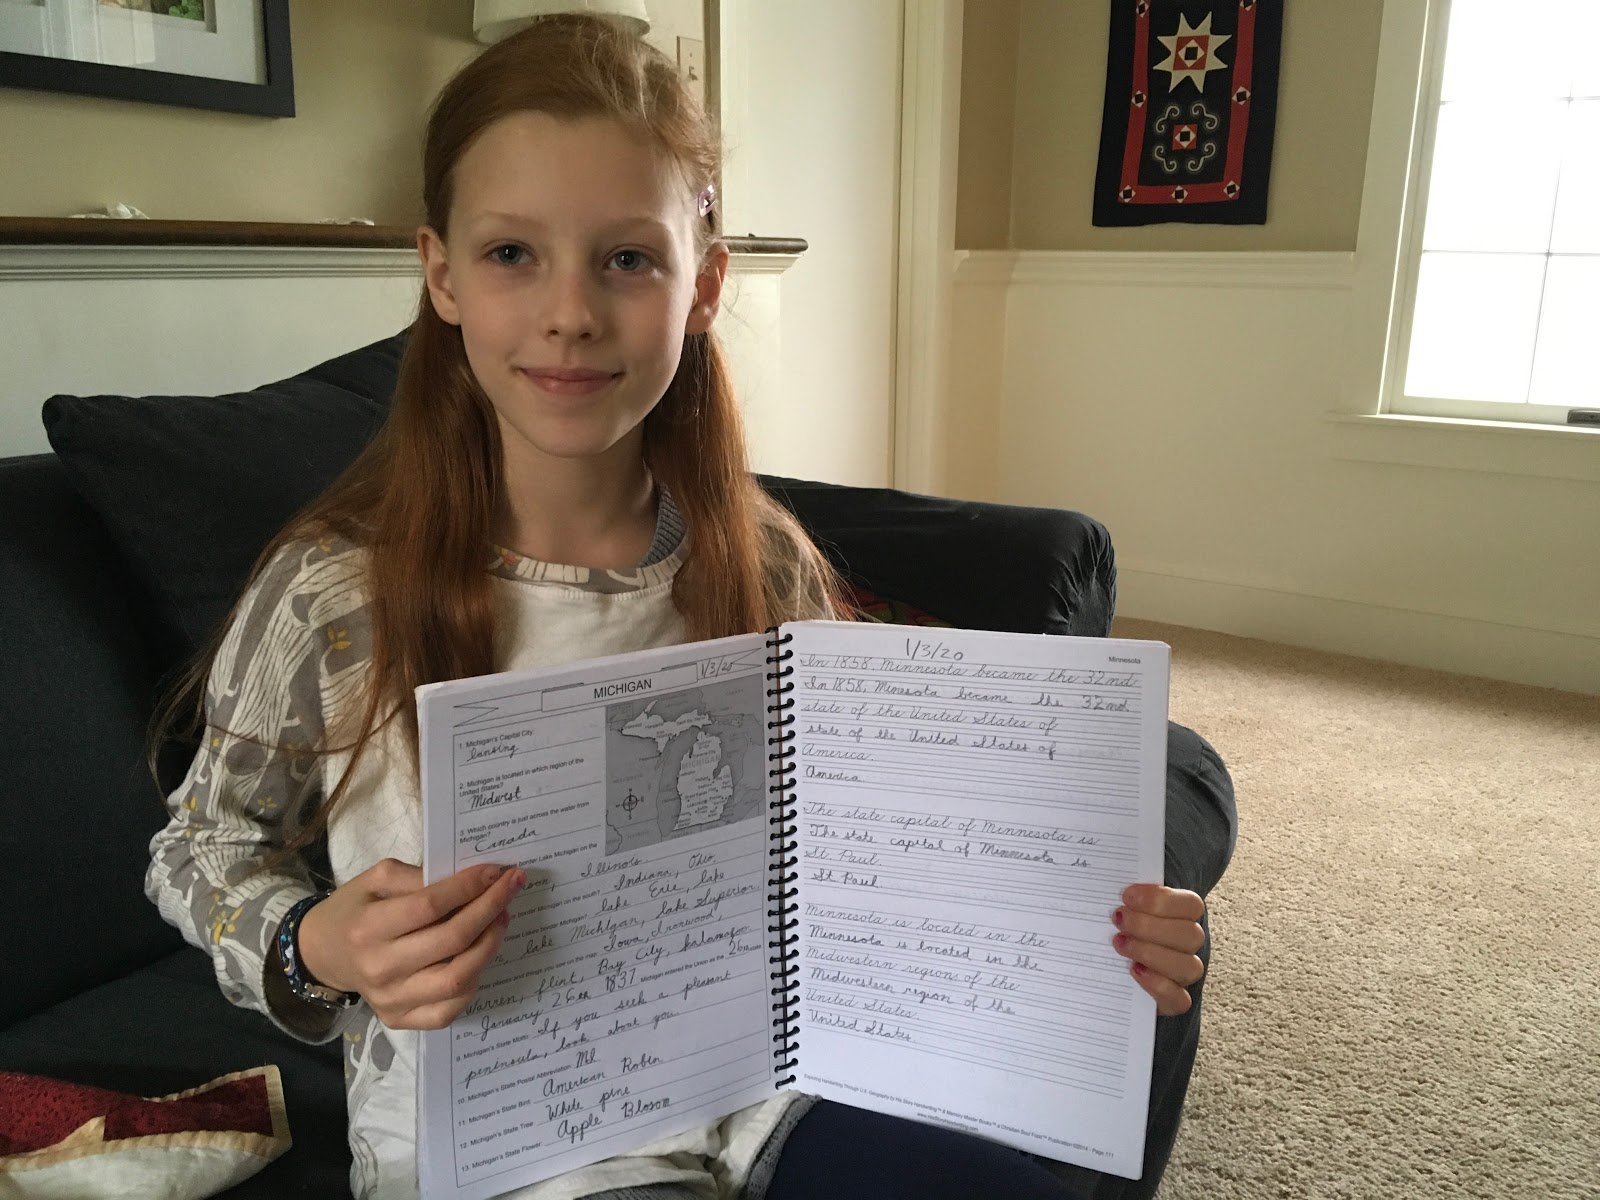 MICHIGAN
1/3/20
1. Michigan's Capital City
Lansing
2. Michigan is located in which region of the
United States?
Midwest
3. Which country is just across the water from
Michigan?
Canada
border Lake Michigan on the
Illinois
border Michigan on the south? Indiana, Ohio
Great Lakes border Michigan? lake Erie, lake
lake MichIgan, lake Superior
other places and things you see on the map. Iowa, Ironwood,
Warren, flint, Bay City, kalamazoo
8. On January 26th 1837 Michigan entered the Union as the 26th state
9. Michigan's State Motto If you seek a pleasant
peninsula, look about you
10. Michigan's State Postal Abbreviation MI
11. Michigan's State Bird American Robin
12. Michigan's State Tree White pine
13. Michigan's State Flower Apple Blosom
MICHIGAN
1/3/20
Minnesota
In 1858, Minnesota became the 32nd
In 1858, Minesota became the 32nd
state of the United States of
state of the United States of
America.
America
The state capital of Minnesota is
The state capital of Minnesota is
St. Paul.
St Paul
Minnesota is located in the
Minnesota is located in the
Midwestern region of the
Midwestern region of the
United States.
United States
Exploring Handwriting Through U.S. Geography by His Story Handwriting™ & Memory Master Books™ A Christian Soul Food™ Publication ©2014 · Page 111